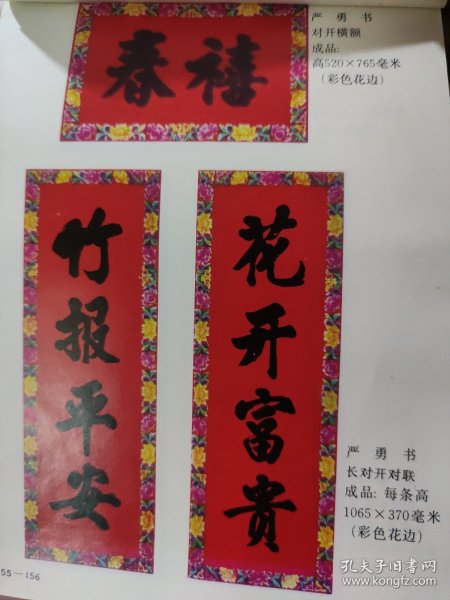 春禧
严勇书
对开横额
成品:
高520×765毫米
（彩色花边）
花开富贵
竹报平安
严勇书
长对开对联
成品: 每条高
1065×370毫米
（彩色花边）
55—156
孔夫子旧书网
www.kongfz.com